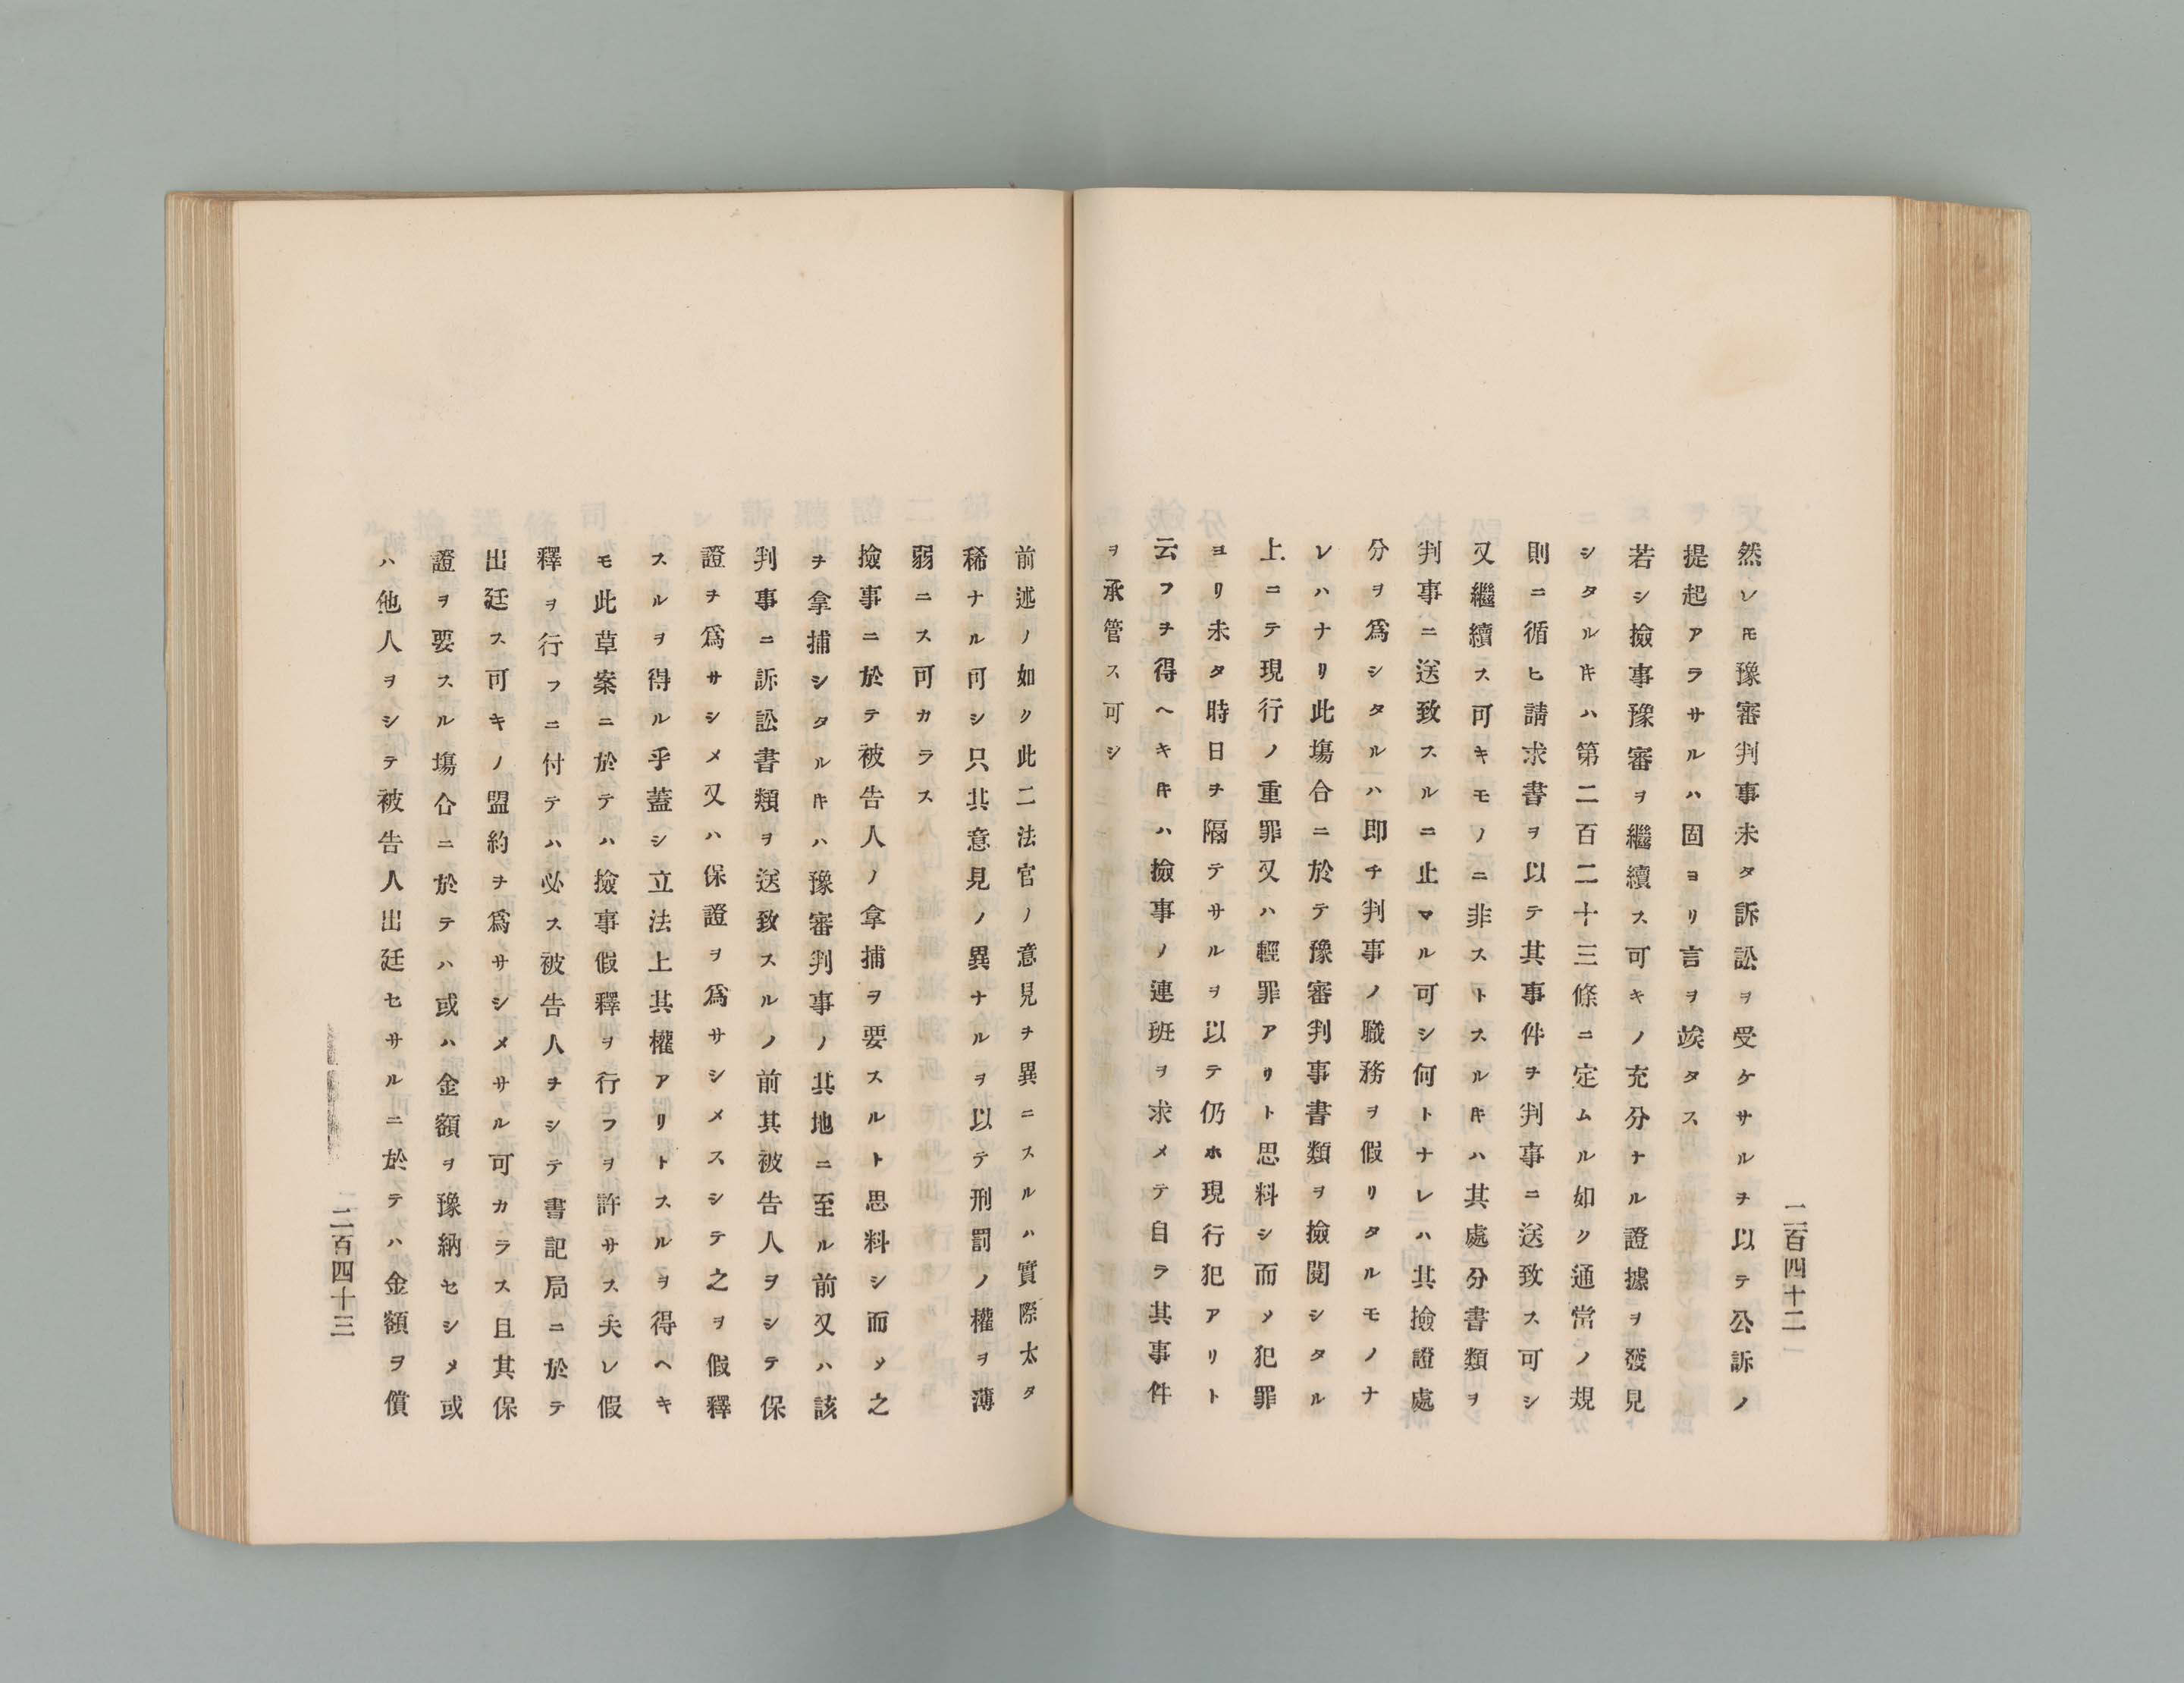 二百四十二
然ソモ豫審判事未タ訴訟ヲ受ケサルヲ以テ公訴ノ
提起アラサルハ固ヨリ言ヲ竢タス
若シ撿事豫審ヲ繼續ス可キノ充分ナル證據ヲ發見
シタルキハ第二百二十三條ニ定ムル如ク通常ノ規
則ニ循ヒ請求書ヲ以テ其事件ヲ判事ニ送致ス可シ
又繼續ス可キモノニ非ストスルキハ其處分書類ヲ
判事ニ送致スルニ止マル可シ何トナレハ其撿證處
分ヲ爲シタルハ即チ判事ノ職務ヲ假リタルモノナ
レハナリ此塲合ニ於テ豫審判事書類ヲ撿閱シタル
上ニテ現行ノ重罪又ハ輕罪アリト思料シ而メ犯罪
ヨリ未タ時日ヲ隔テサルヲ以テ仍ホ現行犯アリト
云フヲ得ヘキキハ撿事ノ連班ヲ求メテ自ラ其事件
ヲ承管ス可シ
前述ノ如ク此二法官ノ意見ヲ異ニスルハ實際太タ
稀ナル可シ只其意見ノ異ナルヲ以テ刑罰ノ權ヲ薄
弱ニス可カラス
撿事ニ於テ被告人ノ拿捕ヲ要スルト思料シ而メ之
ヲ拿捕シタルキハ豫審判事ノ其地ニ至ル前又ハ該
判事ニ訴訟書類ヲ送致スルノ前其被告人ヲシテ保
證ヲ爲サシメ又ハ保證ヲ爲サシメスシテ之ヲ假釋
スルヲ得ル乎蓋シ立法上其權アリトスルヲ得ヘキ
モ此草案ニ於テハ撿事假釋ヲ行フヲ許サス夫レ假
釋ヲ行フニ付テハ必ス被告人ヲシテ書記局ニ於テ
出廷ス可キノ盟約ヲ爲サシメサル可カラス且其保
證ヲ要スル塲合ニ於テハ或ハ金額ヲ豫納セシメ或
ハ他人ヲシテ被告人出廷セサルニ於テハ金額ヲ償
二百四十三